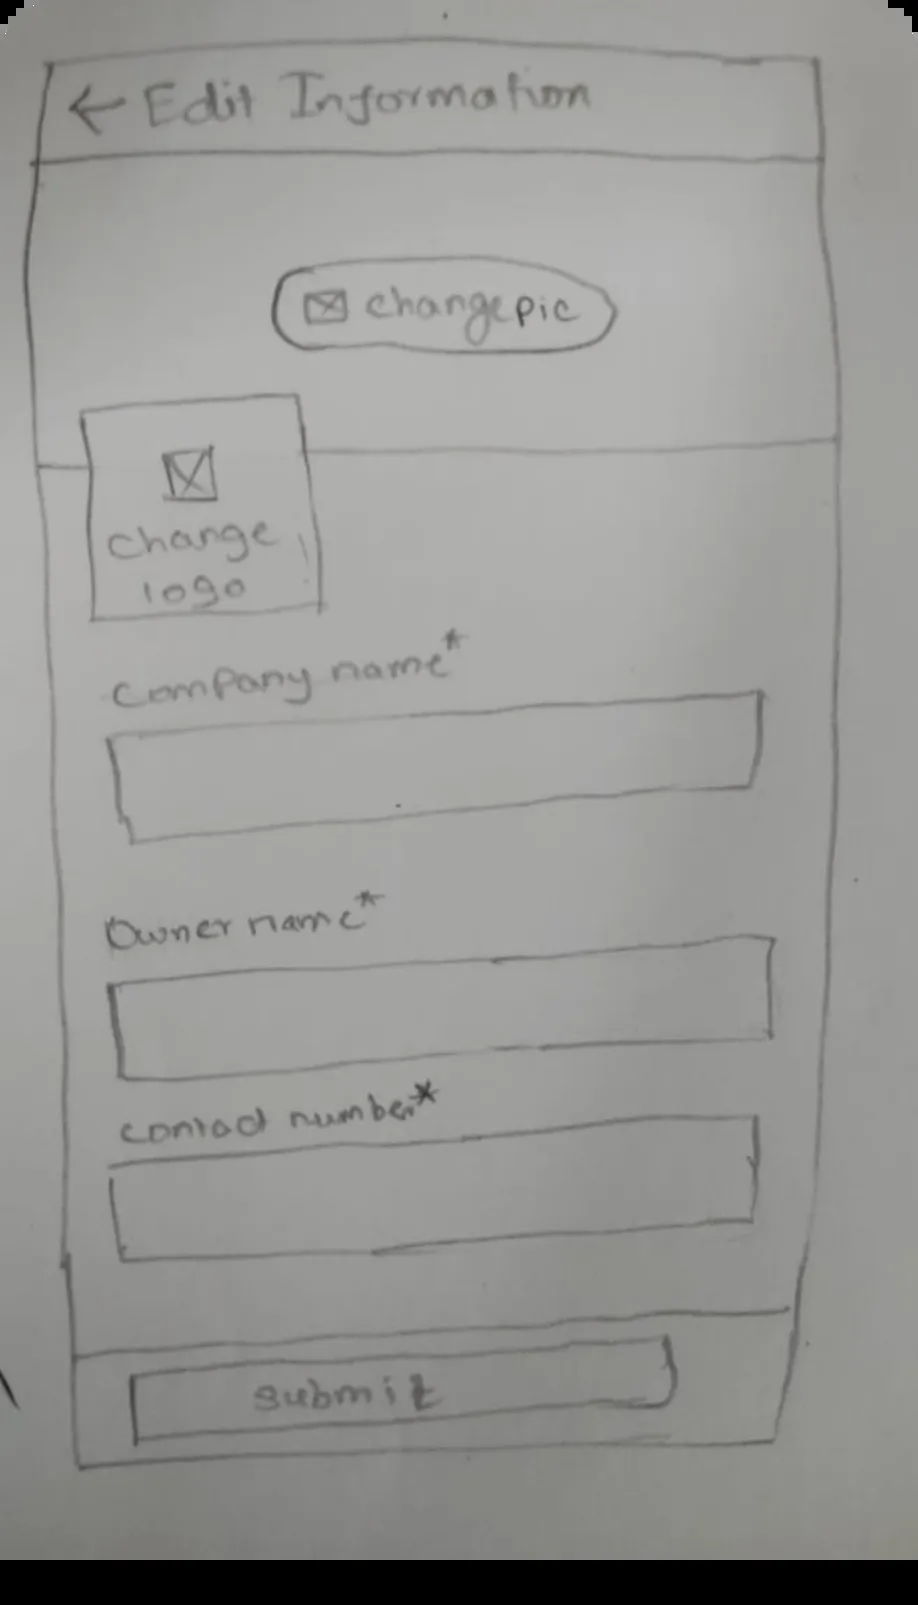 ← Edit Information
changepic
change
logo
company name*
Owner name*
contact number*
submit